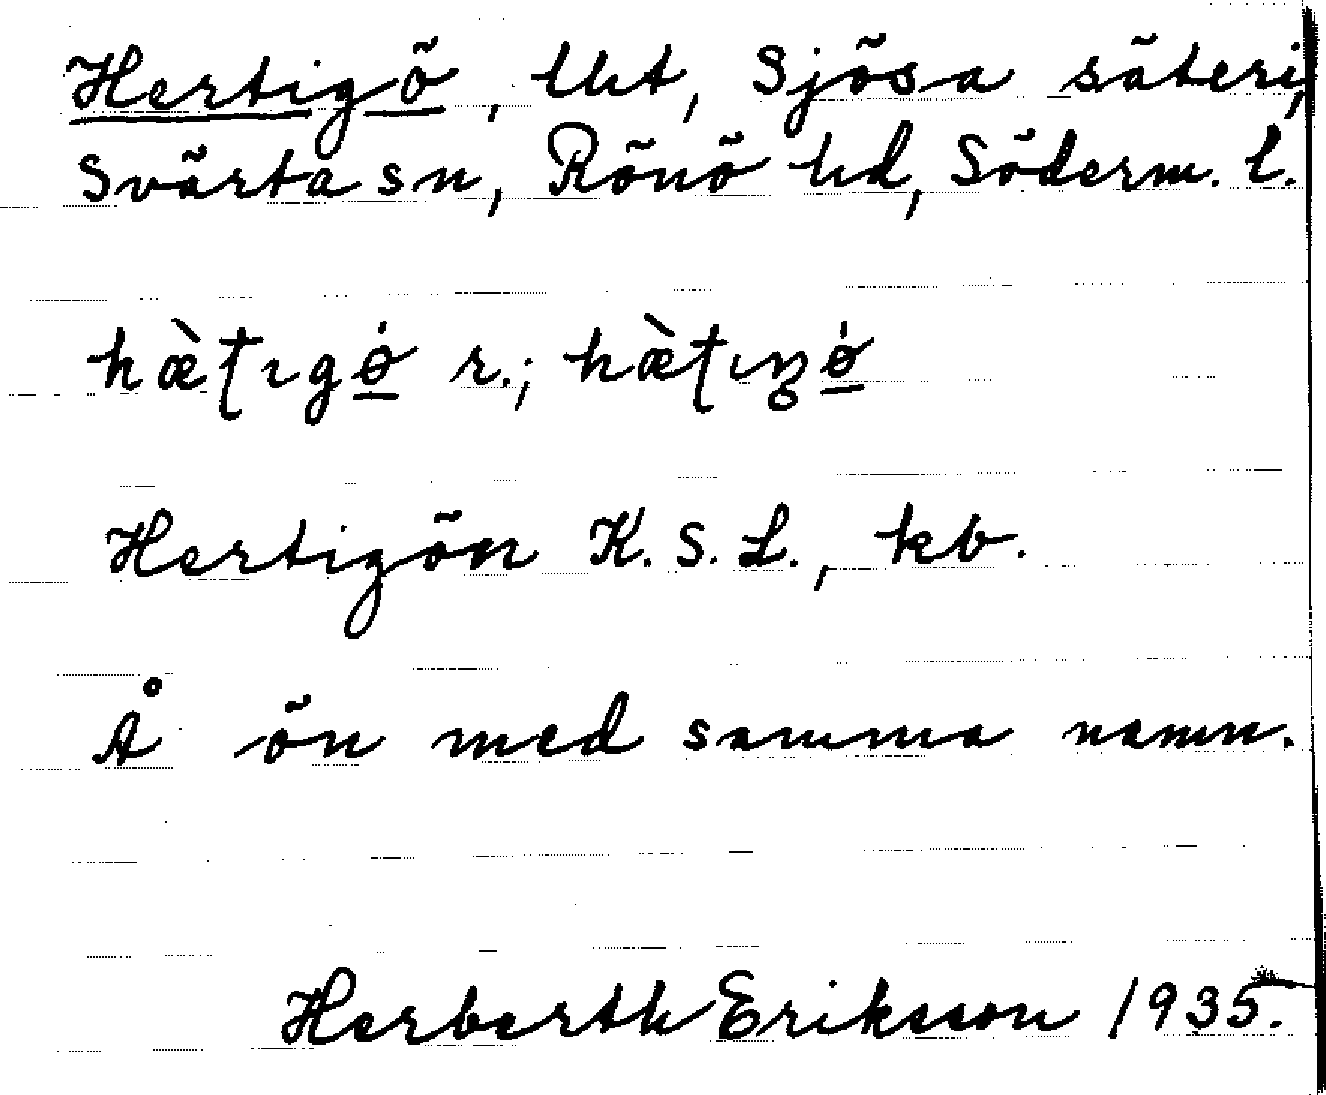 Hertigö, lht, Sjösa säteri,
Svärta sn, Rönö hd, Söderm. l.
hæ̀ʈıgø̲̇ r.; hæ̀ʈıᶎø̲̇
Hertigön K. S. L., kb.
Å ön med samma namn.
Herberth Eriksson 1935.